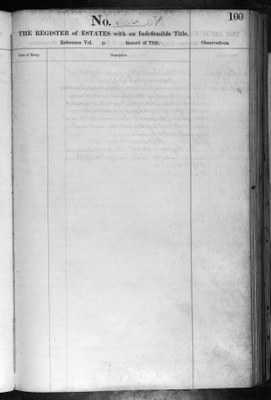 100
No.
THE REGISTER of ESTATES with an Indefeasible Title.
Reference Vol. p. Record of Title. Observations.
Date of Entry. Description.